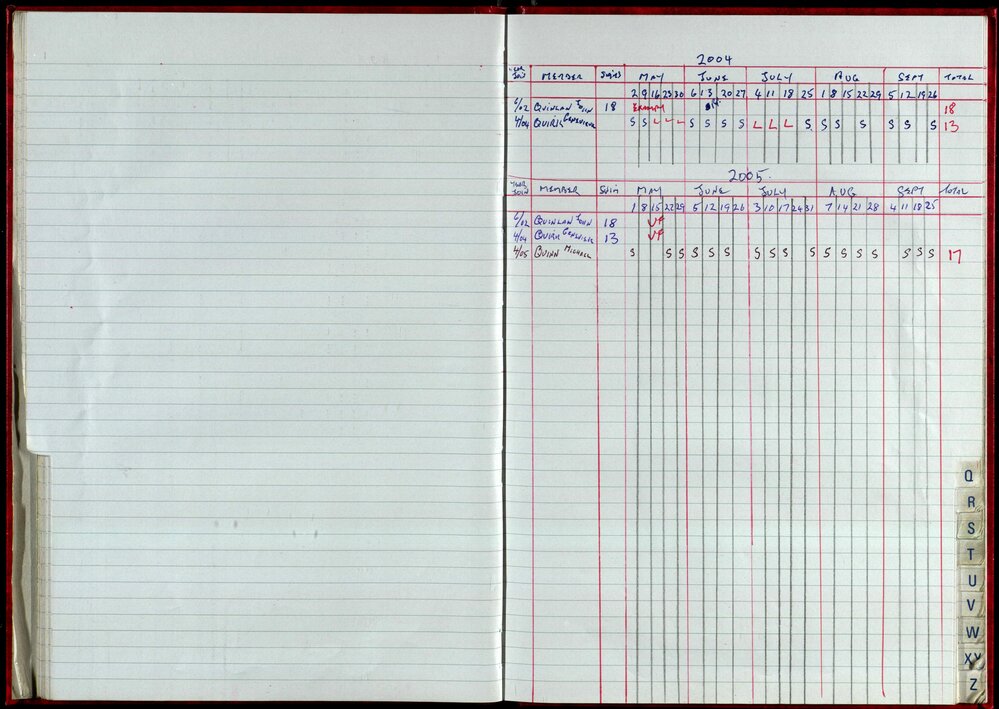 2004
YEAR JOIN MEMBER SWIMS MAY JUNE JULY AUG SEPT TOTAL
2 9 16 23 30 6 13 20 27 4 11 18 25 1 8 15 22 29 5 12 19 26
6/02 QUINLAN JOHN 18 EXEMPT 18
4/04 QUIRK GENEVIEVE S S L L L S S S S L L L S S S S S S S 13
2005
YEAR JOIN MEMBER SWIM MAY JUNE JULY AUG SEPT TOTAL
1 8 15 22 29 5 12 19 26 3 10 17 24 31 7 14 21 28 4 11 18 25
6/02 QUINLAN JOHN 18 UF
4/04 QUIRK GENEVIEVE 13 UF
4/05 QUINN MICHAEL S S S S S S S S S S S S S S S S S 17
Q
R
S
T
U
V
W
XY
Z